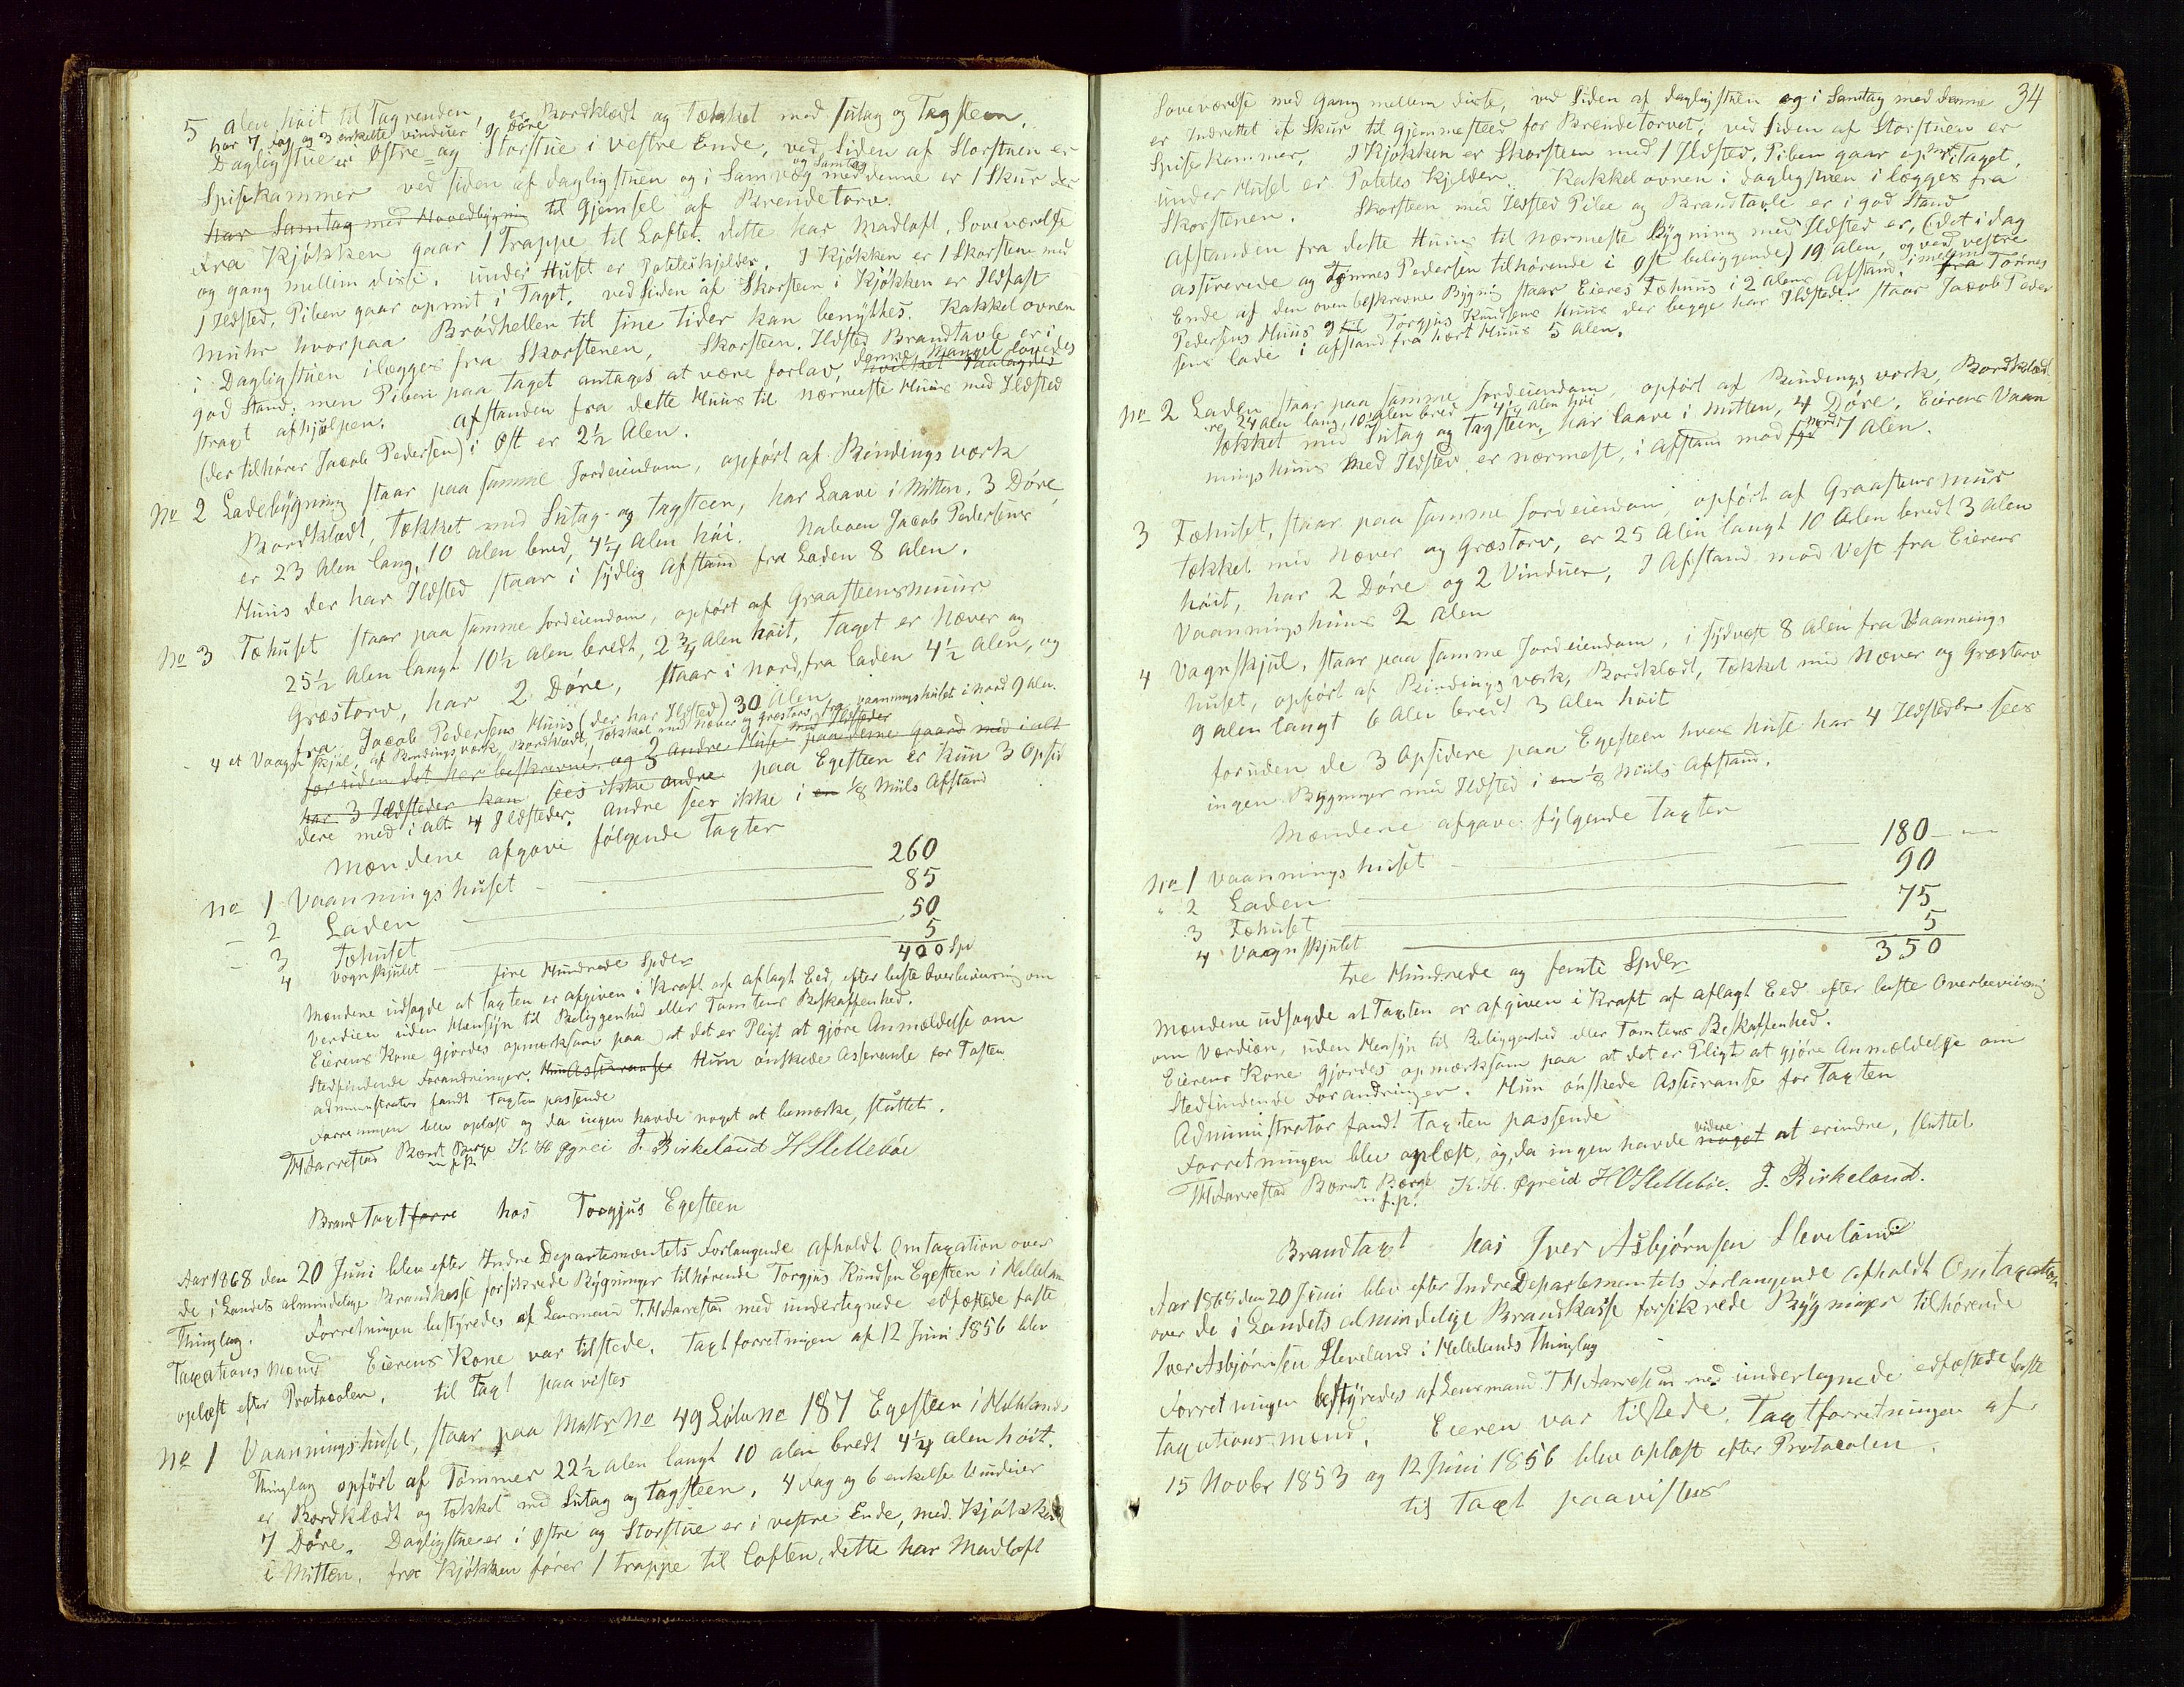 5 alen höit til Tagrenden, er Bordklædt og Tækket med Sutag og Tagsteen,
har 7 fag og 3 enkelte vinduer 9 Döre
Dagligstue er Østre og Storstue i vestre Ende, ved Siden af Storstuen er
Spisekammer ved siden af dagligstuen og i Samvæg og Samtag med denne er 1 Skur der
har Samtag med Hovedbygnin til Gjemsel af Brendetorv.
Fra Kjökken gaar 1 Trappe til Loftet. dette har Madloft, Soveværelse
og gang mellem disse. under Huset er Poteteskjelder. I Kjökken er 1 Skorsteen med
1 Ildsted, Piben gaar op mit i Taget, ved Siden af Skorsteen i Kjökken er Ildfast
Muhr hvorpaa Brödhellen til sine tider kan benyttes. Kakkelovnen
i Dagligstuen ilægges fra Skorstenen, Skorsteen, Ildsted Brandtavle er i
god Stand, men Piben paa Taget antages at være forlav, hvilket Paalagdes denne Mangel lovedes
straxt afhjölpen. Afstanden fra dette Huus til nærmeste Huus med Ildsted
(der tilhører Jacob Pedersen) i Øst er 2½ Alen.
No 2 Ladebygning staar paa samme Jordeiendom, opfört af Bindingsværk
Bordklædt, Tækket med Sutag og Tagsteen, har Laave i Mitten, 3 Döre
er 23 Alen lang, 10 alen bred, 4¼ Alen höi. Naboen Jacob Pedersens
Huus der har Ildsted staar i sydlig Afstand fra Laden 8 alen.
No 3 Fæhuset staar paa samme Jordeiendom, opfört af Graasteensmuur
25½ Alen langt 10½ Alen bredt, 2¾ Alen höit, Taget er Næver og
Græstorv, har 2 Döre, staar i Nord, fra laden 4½ Alen, og
fra Jacob Pedersens Huus (der har Ildsted) 30 Alen
4 et Vaagnskjul, af Bindingsværk, Bordklædt, Tækket med Næver og græstorv, fra vaaningshuset i nord 9 alen.
foruden det her beskrevne og 3 andre Huse med Ildsteder paa denne gaard med i alt
har 3 Ildsteder kan sees ikke andre paa Egesteen er kun 3 Opsid
dere med i alt 4 Ildsteder. Andre sees ikke i en ⅛ Miils Afstand
Mændene afgave følgende Taxter
No 1 Vaanningshuset 260
- 2 Laden 85
- 3 Fæhuset 50
4 Vognskjulet 5
400 Spd
fire Hundrede Spder
Mændene udsagde at Taxten er afgiven i Kraft af aflagt Eed, efter beste Overbeviisning om
Verdien uden Hensyn til Beliggenhed eller Tomtens Beskaffenhed.
Eierens Kone gjordes opmærksom paa at det er Pligt at gjöre Anmældelse om
Stedfindende Forandringer. Hun Assurance Hun önskede Assurance for Taxten
administrator fandt Taxten passende
Forretningen blev oplæst og da ingen havde noget at bemærke, sluttet.
TH Aarrestad Bærnt Berge K H Øgreid J. Birkeland H Slettebøe
m f P
Brand Taxtforre hos Torgjus Egesteen
Aar 1868 den 20 Juni blev efter Indre Departementets Forlangende afholdt Omtaxation over
de i Landets almindelige Brandkasse forsikrede Bygninger tilhørende Torgjus Knudsen Egesteen i Hellelan
Thinglag. Forretningen bestyredes af Lensmand T. H. Aarrestad med undertegnede edfæstede faste
Taxations Mænd Eierens Kone var tilstede. Taxtforretningen af 12 Juni 1856 blev
oplæst efter Protocolen. til Taxt paavistes
No 1 Vaanningshuset, staar paa Matr No 49 Löbe No 187 Egesteen i Hellelands
Thinglag opfört af Tömmer 22½ alen langt 10 alen bredt 4¼ alen höit.
er Bordklædt og tækket med Sutag og Tagsteen, 4 fag og 6 enkelte Vinduer
7 Döre. Dagligstue er i Østre og Storstue er i vestre Ende, med Kjökken
i Mitten, fra Kjökken förer 1 trappe til Loften, dette har Madloft
34
Soveværelse med Gang mellem disse, ved Siden af dagligstuen og i Samtag med denne
er Indrettet et Skur til Gjemmested for Brendetorvet; ved Siden af Storstuen er
Spisekammer, I Kjökken er Skorsteen med 1 Ildsted, Piben gaar op mit i Taget.
under Huset er Potetes Kjelder. Kakkelovnen i dagligstuen ilægges fra
Skorstenen. Skorsteen med Ildsted Pibe og Brandtavle er i god Stand
Afstanden fra dette Huus til nærmeste Bygning med Ildsted er, (det i dag
assurerede og Tønnes Pedersen tilhörende i Øst beliggende) 19 Alen, og ved vestre
Ende af den oven beskrevne Bygnig staar Eieres Fæhuus i 2 Alens Afstand. imellem fra Tönnes
Pedersens Huus og Torgjus Knudsens Huus der begge har Ildsteder staar Jacob Peder
sens Lade i Afstand fra hvert Huus 5 Alen.
No 2 Laden staar paa samme Jordeiendom, opfört af Bindingsværk, Bordklædt
er 24 Alen lang, 10 Alen bred 4¼ Alen höi
Tækket med Sutag og Tagsteen, har laave i Mitten, 4 Döre, Eierens Vaan
ningshuus med Ildsted er nærmest, i Afstand mod Syd nord 7 Alen.
3 Fæhuset, staar paa samme Jordeiendom, opfört af Graasteensmuur
tækket med Næver og Græstorv, er 25 Alen langt 10 Alen bredt 3 Alen
höit, har 2 Döre og 2 Vinduer, I Afstand mod Vest fra Eierens
Vaanningshuus 2 Alen
4 Vagnskjul, staar paa samme Jordeiendom, i Sydvest 8 Alen fra Vaannings
huset, opfört af Bindingsværk, Bordklædt, Tækket med Næver og Græstorv
9 Alen langt 6 Alen bredt 3 Alen höit
foruden de 3 Opsidere paa Egesteen hves huse har 4 Ildsteder sees
ingen Bygninger med Ildsted i en ⅛ Miils Afstand.
Mændene afgave fylgende Taxter
No 1 Vaanningshuset 180
" 2 Laden 90
3 Fæhuset 75
4 Vaagnskjulet 5
350
tre Hundrede og femti Spder
Mændene udsagde at Taxten er afgiven i Kraft af aflagt Eed efter beste Overbeviisning
om Værdien, uden Hensyn til Beliggenhed eller Tomtens Beskaffenhed.
Eierens Kone gjordes opmærksom paa at det er Pligt at gjöre Anmældelse om
Stedfindende Forandringer. Hun önskede Assuranse for Taxten
Administrator fandt Taxten passende
Forretningen blev oplæst, og, da ingen havde noget videre at erindre, sluttet
TH Aarrestad Bærnt Berge K. H. Øgreid H O Slettebøe. J. Birkeland.
m f. p.
Brandtaxt hos Iver Asbjörnsen Sleveland
Aar 1868 den 20 Juni blev efter Indre Departementets Forlangende afholdt Omtaxation
over de i Landets almindelige Brandkasse forsikrede Bygninger tilhörende
Iver Asbjörnsen Sleveland i Hellelands Thinglag
Forretningen bestyredes af Lensmand T H Aarrestad med undertegnede edfæstede faste
taxationsmænd. Eieren var tilstede. Taxtforretningen af
15 Novbr 1853 og 12 Juni 1856 blev oplæst efter Protocolen.
til Taxt paavistes